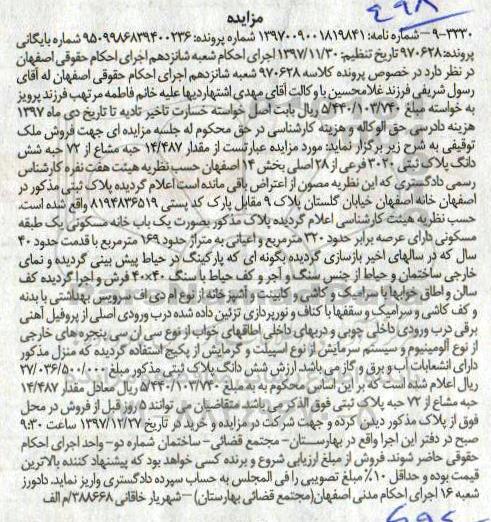 ۶۹۸
مزایده
۹-۳۳۳۰ – شماره نامه: ۱۳۹۷۰۰۹۰۰۱۸۱۹۸۴۱ شماره پرونده: ۹۵۰۹۹۸۶۸۳۹۴۰۰۲۳۶ شماره بایگانی
پرونده: ۹۷۰۶۲۸ تاریخ تنظیم: ۱۳۹۷/۱۱/۳۰ اجرای احکام شعبه شانزدهم اجرای احکام حقوقی اصفهان
در نظر دارد در خصوص پرونده کلاسه ۹۷۰۶۲۸ شعبه شانزدهم اجرای احکام حقوقی اصفهان له آقای
رسول شریفی فرزند غلامحسین با وکالت آقای مهدی اشتهاردیها علیه خانم فاطمه مرتهب فرزند پرویز
به خواسته مبلغ ۵/۴۴۰/۱۰۳/۷۴۰ ریال بابت اصل خواسته خسارت تاخیر تادیه تا تاریخ دی ماه ۱۳۹۷
هزینه دادرسی حق الوکاله و هزینه کارشناسی در حق محکوم له جلسه مزایده ای جهت فروش ملک
توقیفی به شرح زیر برگزار نماید: مورد مزایده عبارتست از مقدار ۱۴/۴۸۷ حبه مشاع از ۷۲ حبه شش
دانگ پلاک ثبتی ۳۰۲۰ فرعی از ۲۸ اصلی بخش ۱۴ اصفهان حسب نظریه هیئت هفت نفره کارشناس
رسمی دادگستری که این نظریه مصون از اعتراض باقی مانده است اعلام گردیده پلاک ثبتی مذکور در
اصفهان خانه اصفهان خیابان گلستان پلاک ۹ مقابل پارک کد پستی ۸۱۹۴۸۳۶۵۱۹ واقع شده است.
حسب نظریه هیئت کارشناسی اعلام گردیده پلاک مذکور بصورت یک باب خانه مسکونی یک طبقه
مسکونی دارای عرصه برابر حدود ۳۲۰ مترمربع و اعیانی به متراژ حدود ۱۶۹ مترمربع با قدمت حدود ۴۰
سال که در سالهای اخیر بازسازی گردیده بگونه ای که پارکینگ در حیاط پیش بینی گردیده و نمای
خارجی ساختمان و حیاط از جنس سنگ و آجر و کف حیاط با سنگ ۴۰×۴۰ فرش و اجرا گردیده کف
سالن و اطاق خوابها با سرامیک و کاشی و کابینت و آشپزخانه از نوع ام دی اف سرویس بهداشتی با بدنه
و کف کاشی و سرامیک و سقفها با کناف و نورپردازی تزئین داده شده درب ورودی اصلی از پروفیل آهنی
برقی درب ورودی داخلی چوبی و دربهای داخلی اطاقهای خواب از نوع سی ان سی پنجره های خارجی
از نوع آلومینیوم و سیستم سرمایش از نوع اسپیلت و گرمایش از پکیج استفاده گردیده که منزل مذکور
دارای انشعابات آب و برق و گاز می باشد ارزش شش دانگ پلاک ثبتی مذکور مبلغ ۲۷/۰۳۶/۵۰۰/۰۰۰
ریال اعلام شده است که بر این اساس محکوم به به مبلغ ۵/۴۴۰/۱۰۳/۷۴۰ ریال معادل مقدار ۱۴/۴۸۷
حبه مشاع از ۷۲ حبه پلاک ثبتی فوق الذکر می باشد متقاضیان می توانند ۵ روز قبل از فروش در محل
فوق از پلاک مذکور دیدن کرده و جهت شرکت در مزایده و خرید در تاریخ ۱۳۹۷/۱۲/۲۷ ساعت ۹:۳۰
صبح در دفتر این اجرا واقع در بهارستان – مجتمع قضائی – ساختمان شماره دو – واحد اجرای احکام
حقوقی حاضر شوند. فروش از مبلغ ارزیابی شروع و برنده کسی خواهد بود که پیشنهاد کننده بالاترین
قیمت بوده و حداقل ۱۰٪ مبلغ تصویبی را فی المجلس به حساب سپرده دادگستری واریز نماید. دادورز
شعبه ۱۶ اجرای احکام مدنی اصفهان (مجتمع قضائی بهارستان) – شهریار خاقانی ۳۸۸۶۶۸/م الف